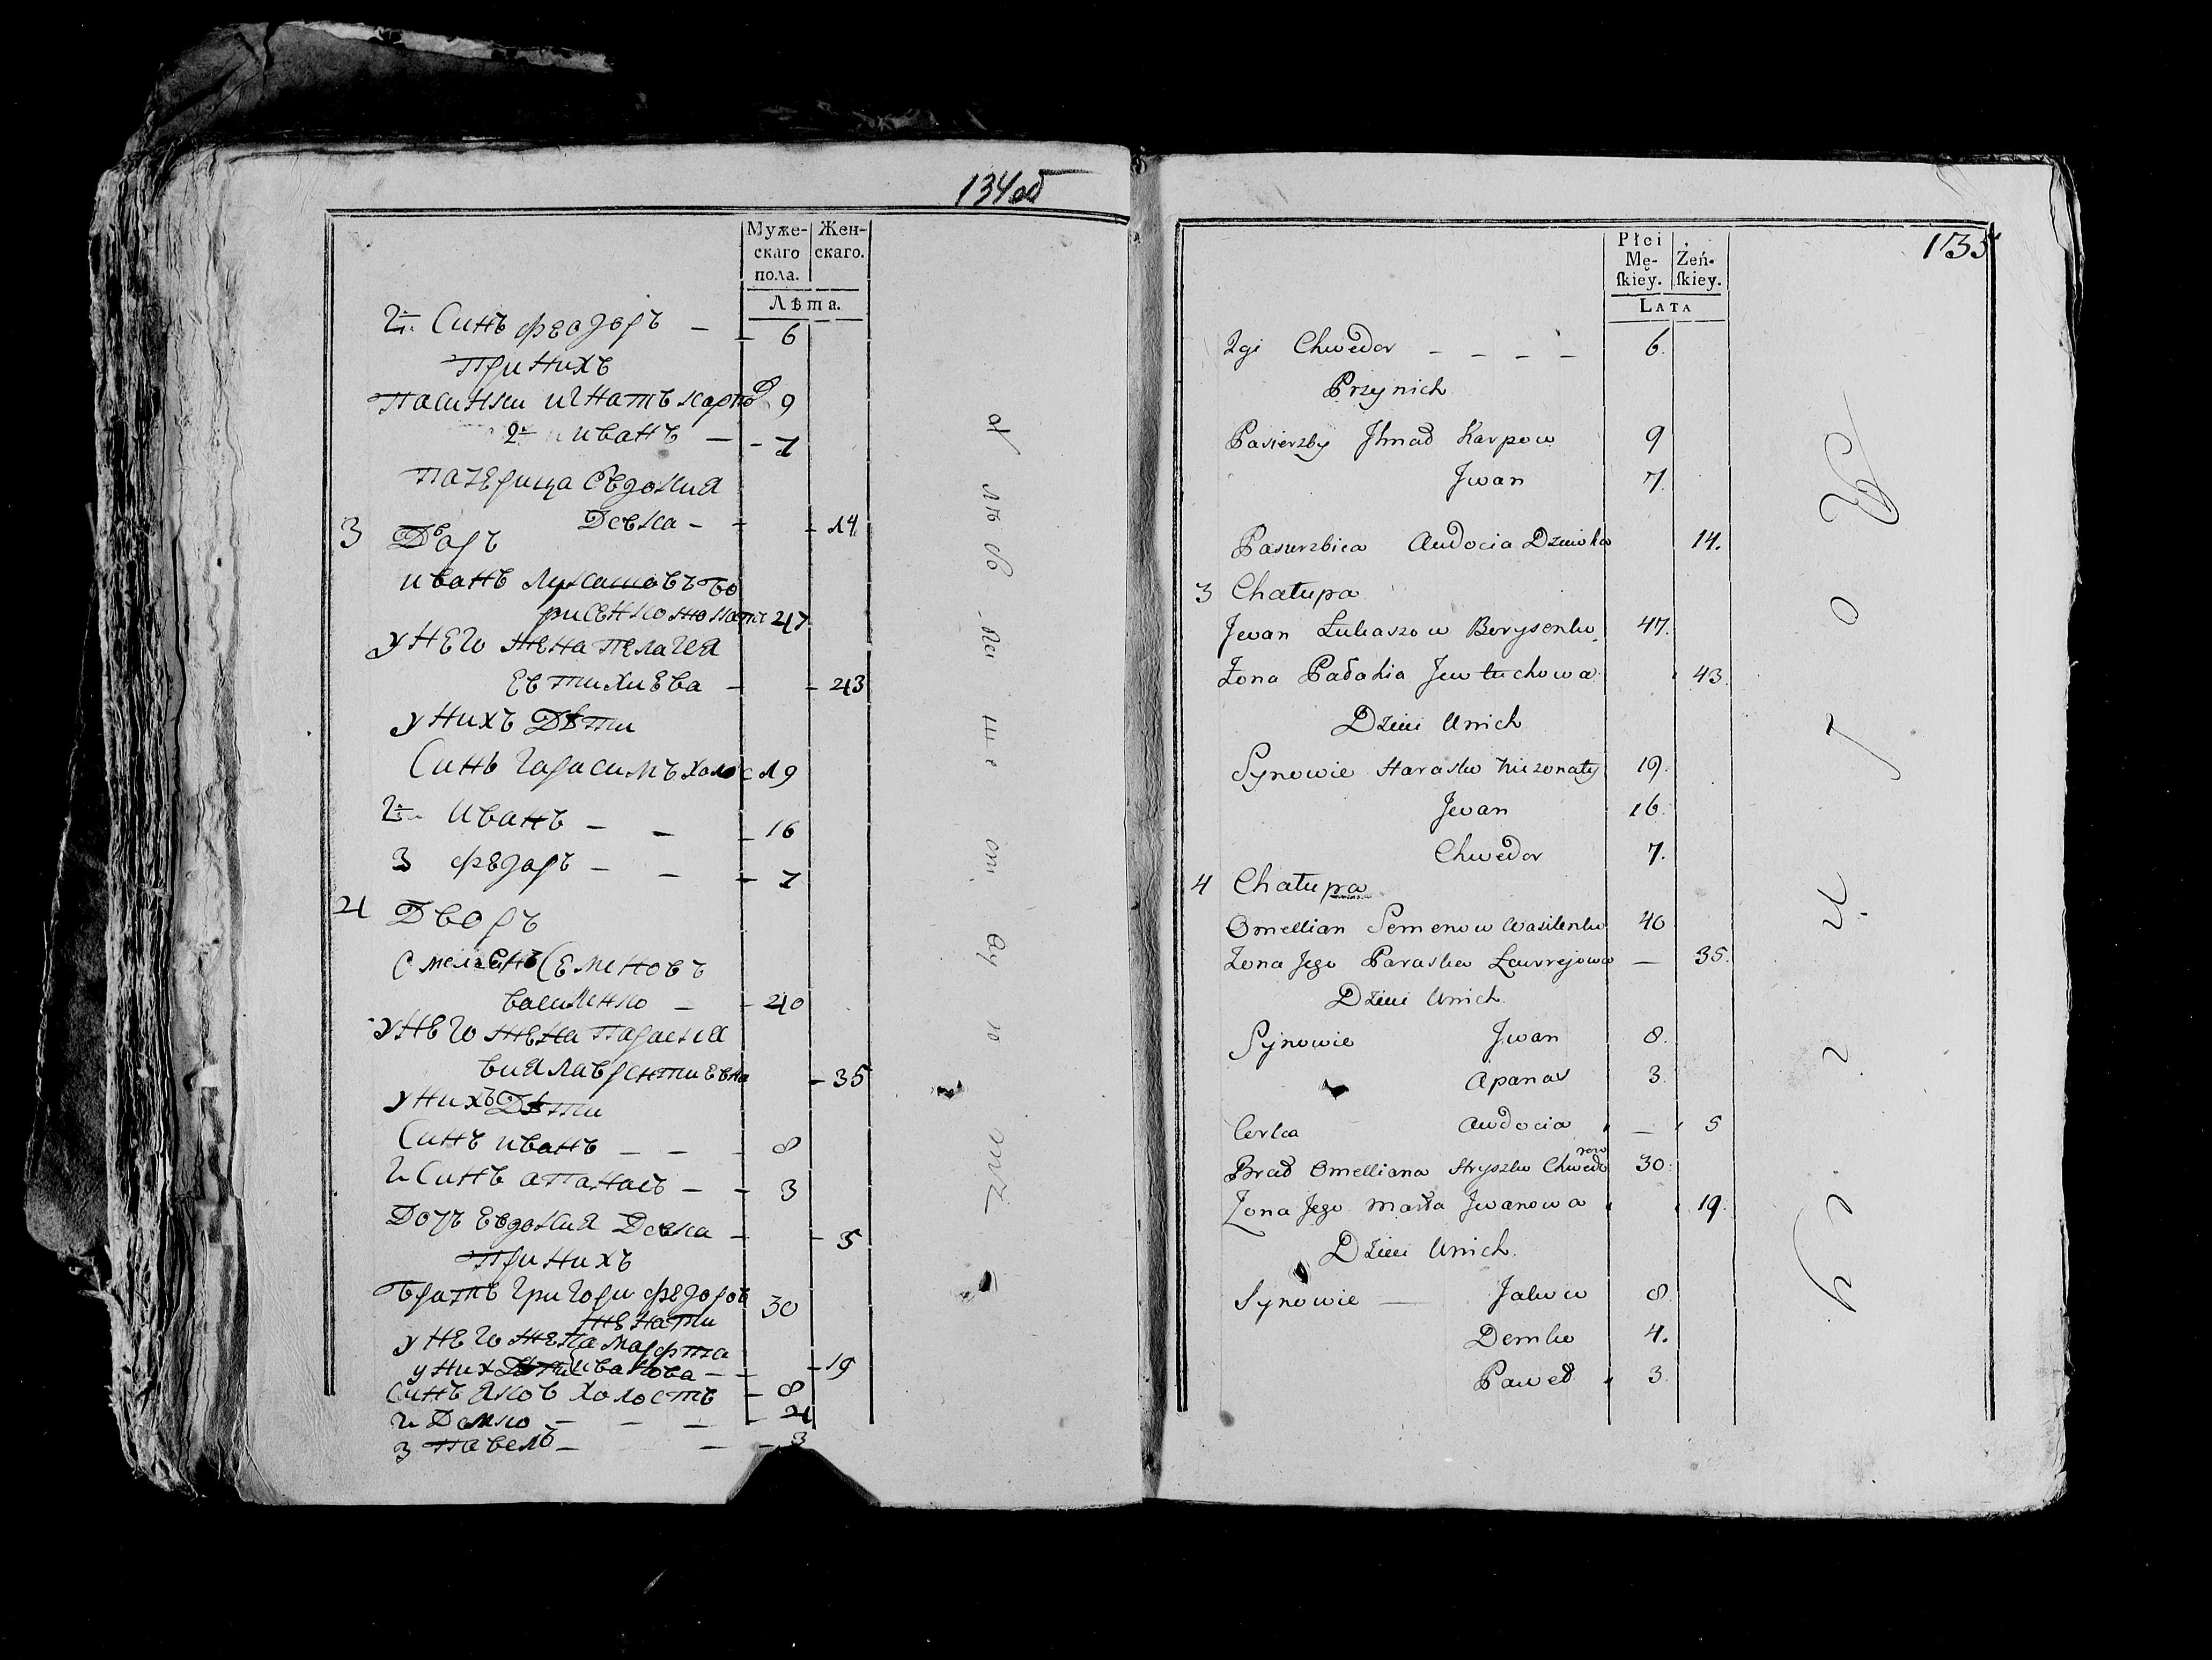 134об
Муже-
скаго
пола.
Жен-
скаго.
Лѣта.
2й Синъ Феодоръ — 6
при нихъ
пасинки игнатъ карпо 9
2й иванъ — 7
падчерица Евдокия
Девка — 14
3 Дворъ
иванъ лукашовъ бо
рисенко жонатъ 47
у него жена пелагея
Евтихиева — 43
у нихъ Дѣти
Синъ гарасимъ холос 19
2й иванъ — — 16
3 федоръ — — 7
4 Дворъ
Омелианъ Семеновъ
василенко — 40
у него жена параске
вия лаврентиевна 35
у нихъ Дѣти
Синъ иванъ — — 8
2й Синъ апанасъ — 3
Дочъ евдокия Девка — 5
при нихъ
братъ григори федоров 30
женати
у него жена марфта
у них Дѣти иванова — 19
Синъ яков холостъ — 8
2й Демко — — — 4
3 павелъ — — 3
135
Płci
Mę-
ſkiey.
Żeń-
ſkiey.
LATA
2gi Chwedor — — — — 6.
Przynich
Pasierzby Ihnad Karpow 9
Jwan 7.
Pasierzbica Audocia Dziewka 14.
3 Chałupa
Jwan Łukaszow Borysenko 47.
Żona Pałahia Jewtuchowa 43.
Dzieci Unich
Synowie Harasko Nieżonaty 19.
Jwan 16.
Chwedor 7.
4 Chałupa
Omellian Semenow Wasilenko 40
Żona Jego Paraska Ławrejowa — 35.
Dzieci Unich.
Synowie Jwan 8.
Apanas 3.
Corka Audocia — 5
Brad Omelliana Hryszko Chwedo
row 30.
Żona Jego Marta Jwanowa 19.
Dzieci Unich.
Synowie — Jakow 8.
Demko 4.
Paweł 3.